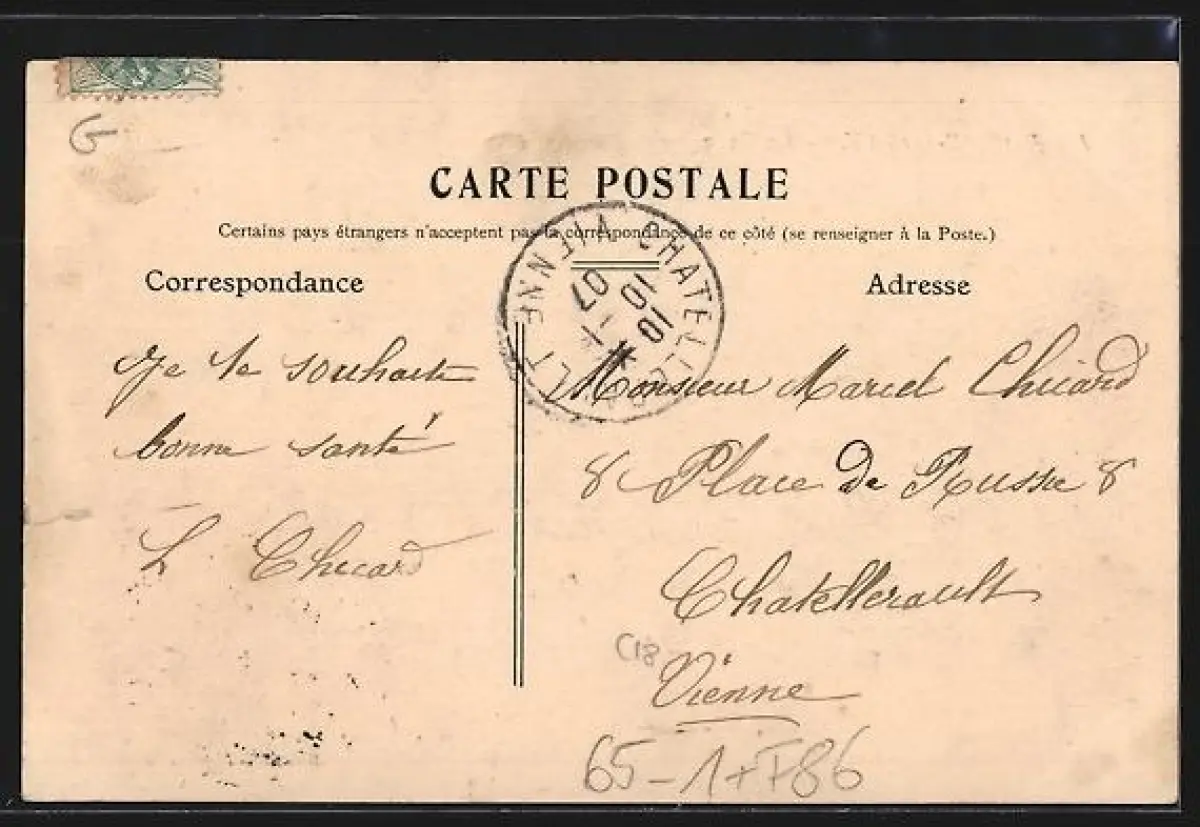 G
CARTE POSTALE
Certains pays étrangers n'acceptent pas la correspondance de ce côté (se renseigner à la Poste.)
Correspondance
Adresse
CHATELLERAULT VIENNE
10 10
07
Je te souhaite
bonne santé
Chicard
Monsieur Marcel Chicard
8 Place de Russie 8
Chatellerault
Vienne
C18
65-1+F86